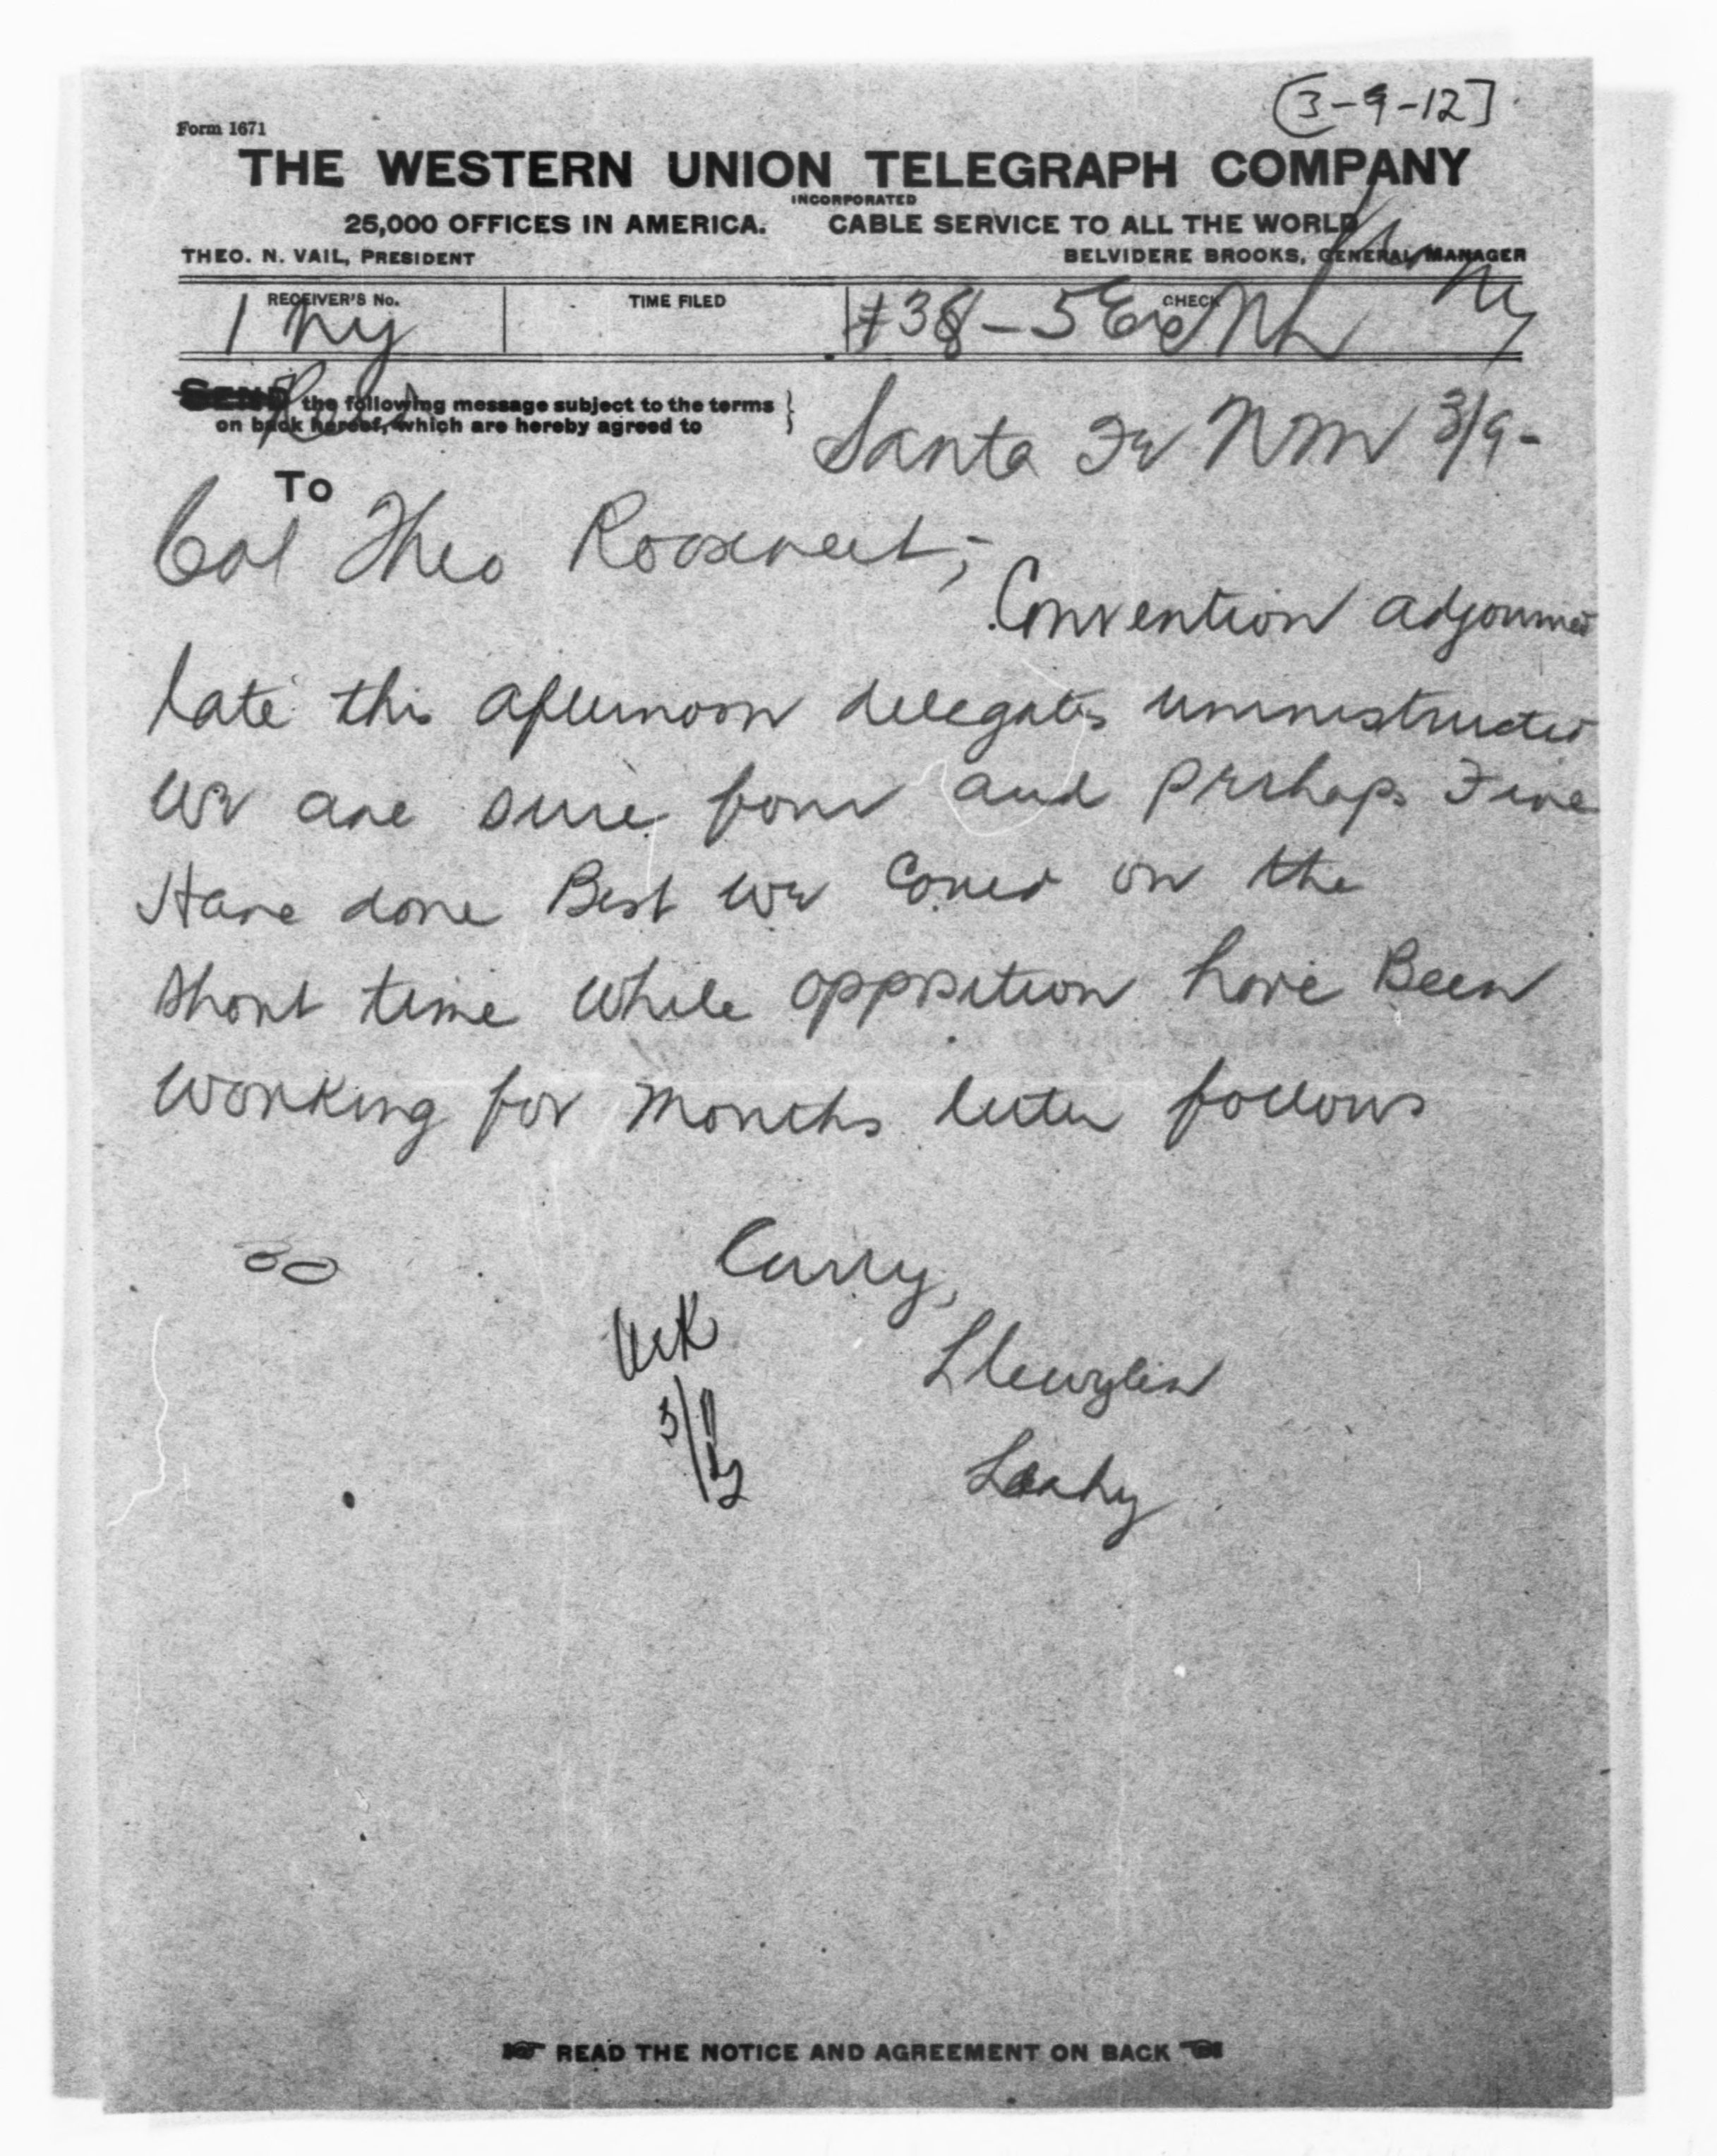 [3-9-12]
Form 1671
THE WESTERN UNION TELEGRAPH COMPANY
INCORPORATED
25,000 OFFICES IN AMERICA. CABLE SERVICE TO ALL THE WORLD
THEO. N. VAIL, PRESIDENT BELVIDERE BROOKS, GENERAL MANAGER
RECEIVER'S No. TIME FILED CHECK
1 Ny #38 - NL Ny
SEND the following message subject to the terms
on back hereof, which are hereby agreed to
Santa Fe NM 3/9-
To
Col Theo Roosevelt,-
Convention adjourned
late this afternoon delegates uninstructed
We are sure four and perhaps Five
Have done Best we Could on the
short time while opposition have Been
working for months letter follows
Curry,
Llewylin
Leahy
READ THE NOTICE AND AGREEMENT ON BACK